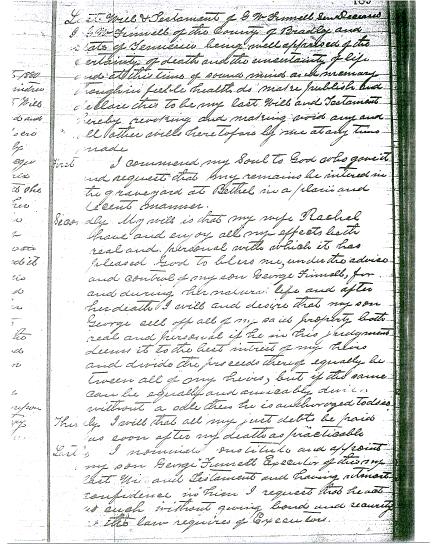 Last Will & Testament of G W Finnell Sen Deceased
I G. W. Finnell of the County of Bradly and
State of Tennessee being well apprised of the
certainty of death and the uncertainty of life
and at this time of sound mind and memory
though in feeble health do make publish and
declare this to be my last Will and Testament
hereby revoking and making void any and
all other wills heretofore by me at any time
made
First I commend my Soul to God who gave it
and request that my remains be interred in
the graveyard at Bethel in a plain and
decent manner.
Secondly My will is that my wife Rachel
have and enjoy all my effects both
real and personal with which it has
pleased God to bless me, under the advice
and control of my son George Finnell, for
and during her natural life and after
her death I will and desire that my son
George sell off all of my said property both
real and personal if he in his judgment
deems it to the best intrest of my heirs
and divide the proceeds thereof equally be
tween all of my heirs, but if the same
can be equally and amicably
without a sale then he is authorized to do so
I will that all my just debts be paid
as soon after my death as practicable
I nominate constitute and appoint
my son George Finnell Executor of this my
last Will and Testament and having utmost
confidence in him I request that he act
as such without giving bond and security
as the law requires of Executors.